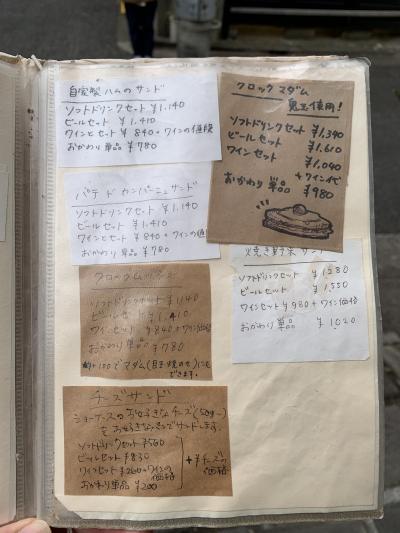 自家製ハムのサンド
ソフトドリンクセット ¥1.140
ビールセット ¥1.410
ワインとセット ¥840+ワインの値段
おかわり単品 ¥780
パテ ド カンパーニュサンド
ソフトドリンクセット ¥1.140
ビールセット ¥1.410
ワインとセット ¥840+ワインの値
おかわり単品 ¥780
クロックムッシュ
ソフトドリンクセット ¥1.140
ビールセット ¥1.410
ワインセット ¥840+ワイン価格
おかわり単品 ¥780
+100でマダム(目玉焼のせ)にも
できます。
チーズサンド
ショーケースのお好きなチーズ(50g〜)
をお好きなパンでサンドします。
ソフトドリンクセット ¥560
ビールセット ¥830
ワインセット ¥260+ワインの価格
おかわり単品 ¥200
+¥チーズの価格
クロックマダム
使用!
ソフトドリンクセット ¥1,340
ビールセット ¥1,610
ワインセット ¥1,040
+ワイン代
おかわり単品 ¥980
焼き野菜サンド
ソフトドリンクセット ¥1280
ビールセット ¥1,550
ワインセット ¥980+ワイン価格
おかわり単品 ¥1020